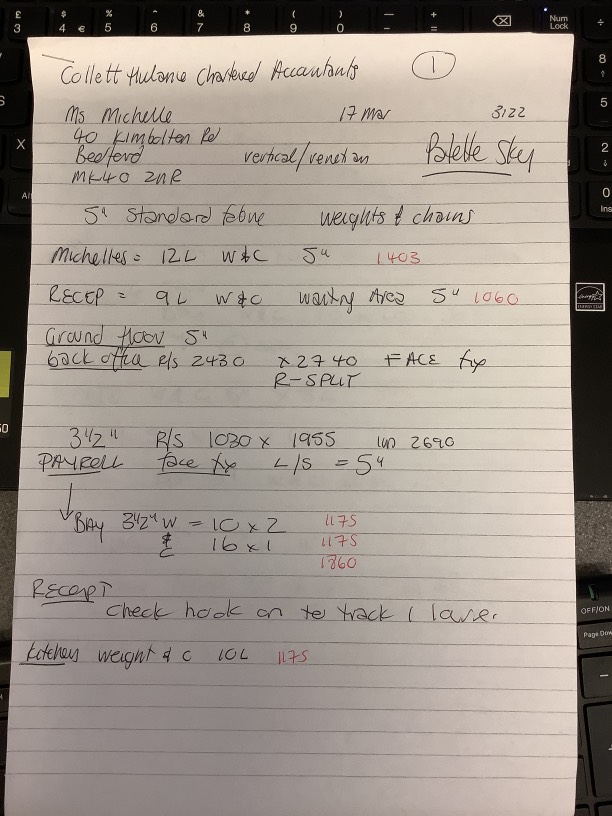 Collett Hulance Chartered Accountants 1
Ms Michelle 17 Mar 3122
40 Kimbolton Rd
Bedford vertical/venetian Palette Sky
MK40 2NR
5" Standard fabric weights & chains
Michelles = 12L W&C 5" 1403
RECEP = 9L W&C waiting Area 5" 1060
Ground floor 5"
back office R/S 2430 x 2740 FACE fix
R-SPLIT
3 1/2" R/S 1030 x 1955 2690
PAYROLL face fix L/S = 5"
BAY 3 1/2" W = 10 x 2 1175
& 16 x 1 1175
C 1860
RECEPT
Check hook on track 1
Kitchen weight & C 10L 1175
£ $ % ^ & * ( ) _ + Num Lock
3 4 € 5 6 7 8 9 0 - =
8
5
2
0
Ins
X
ENERGY STAR
OFF/ON